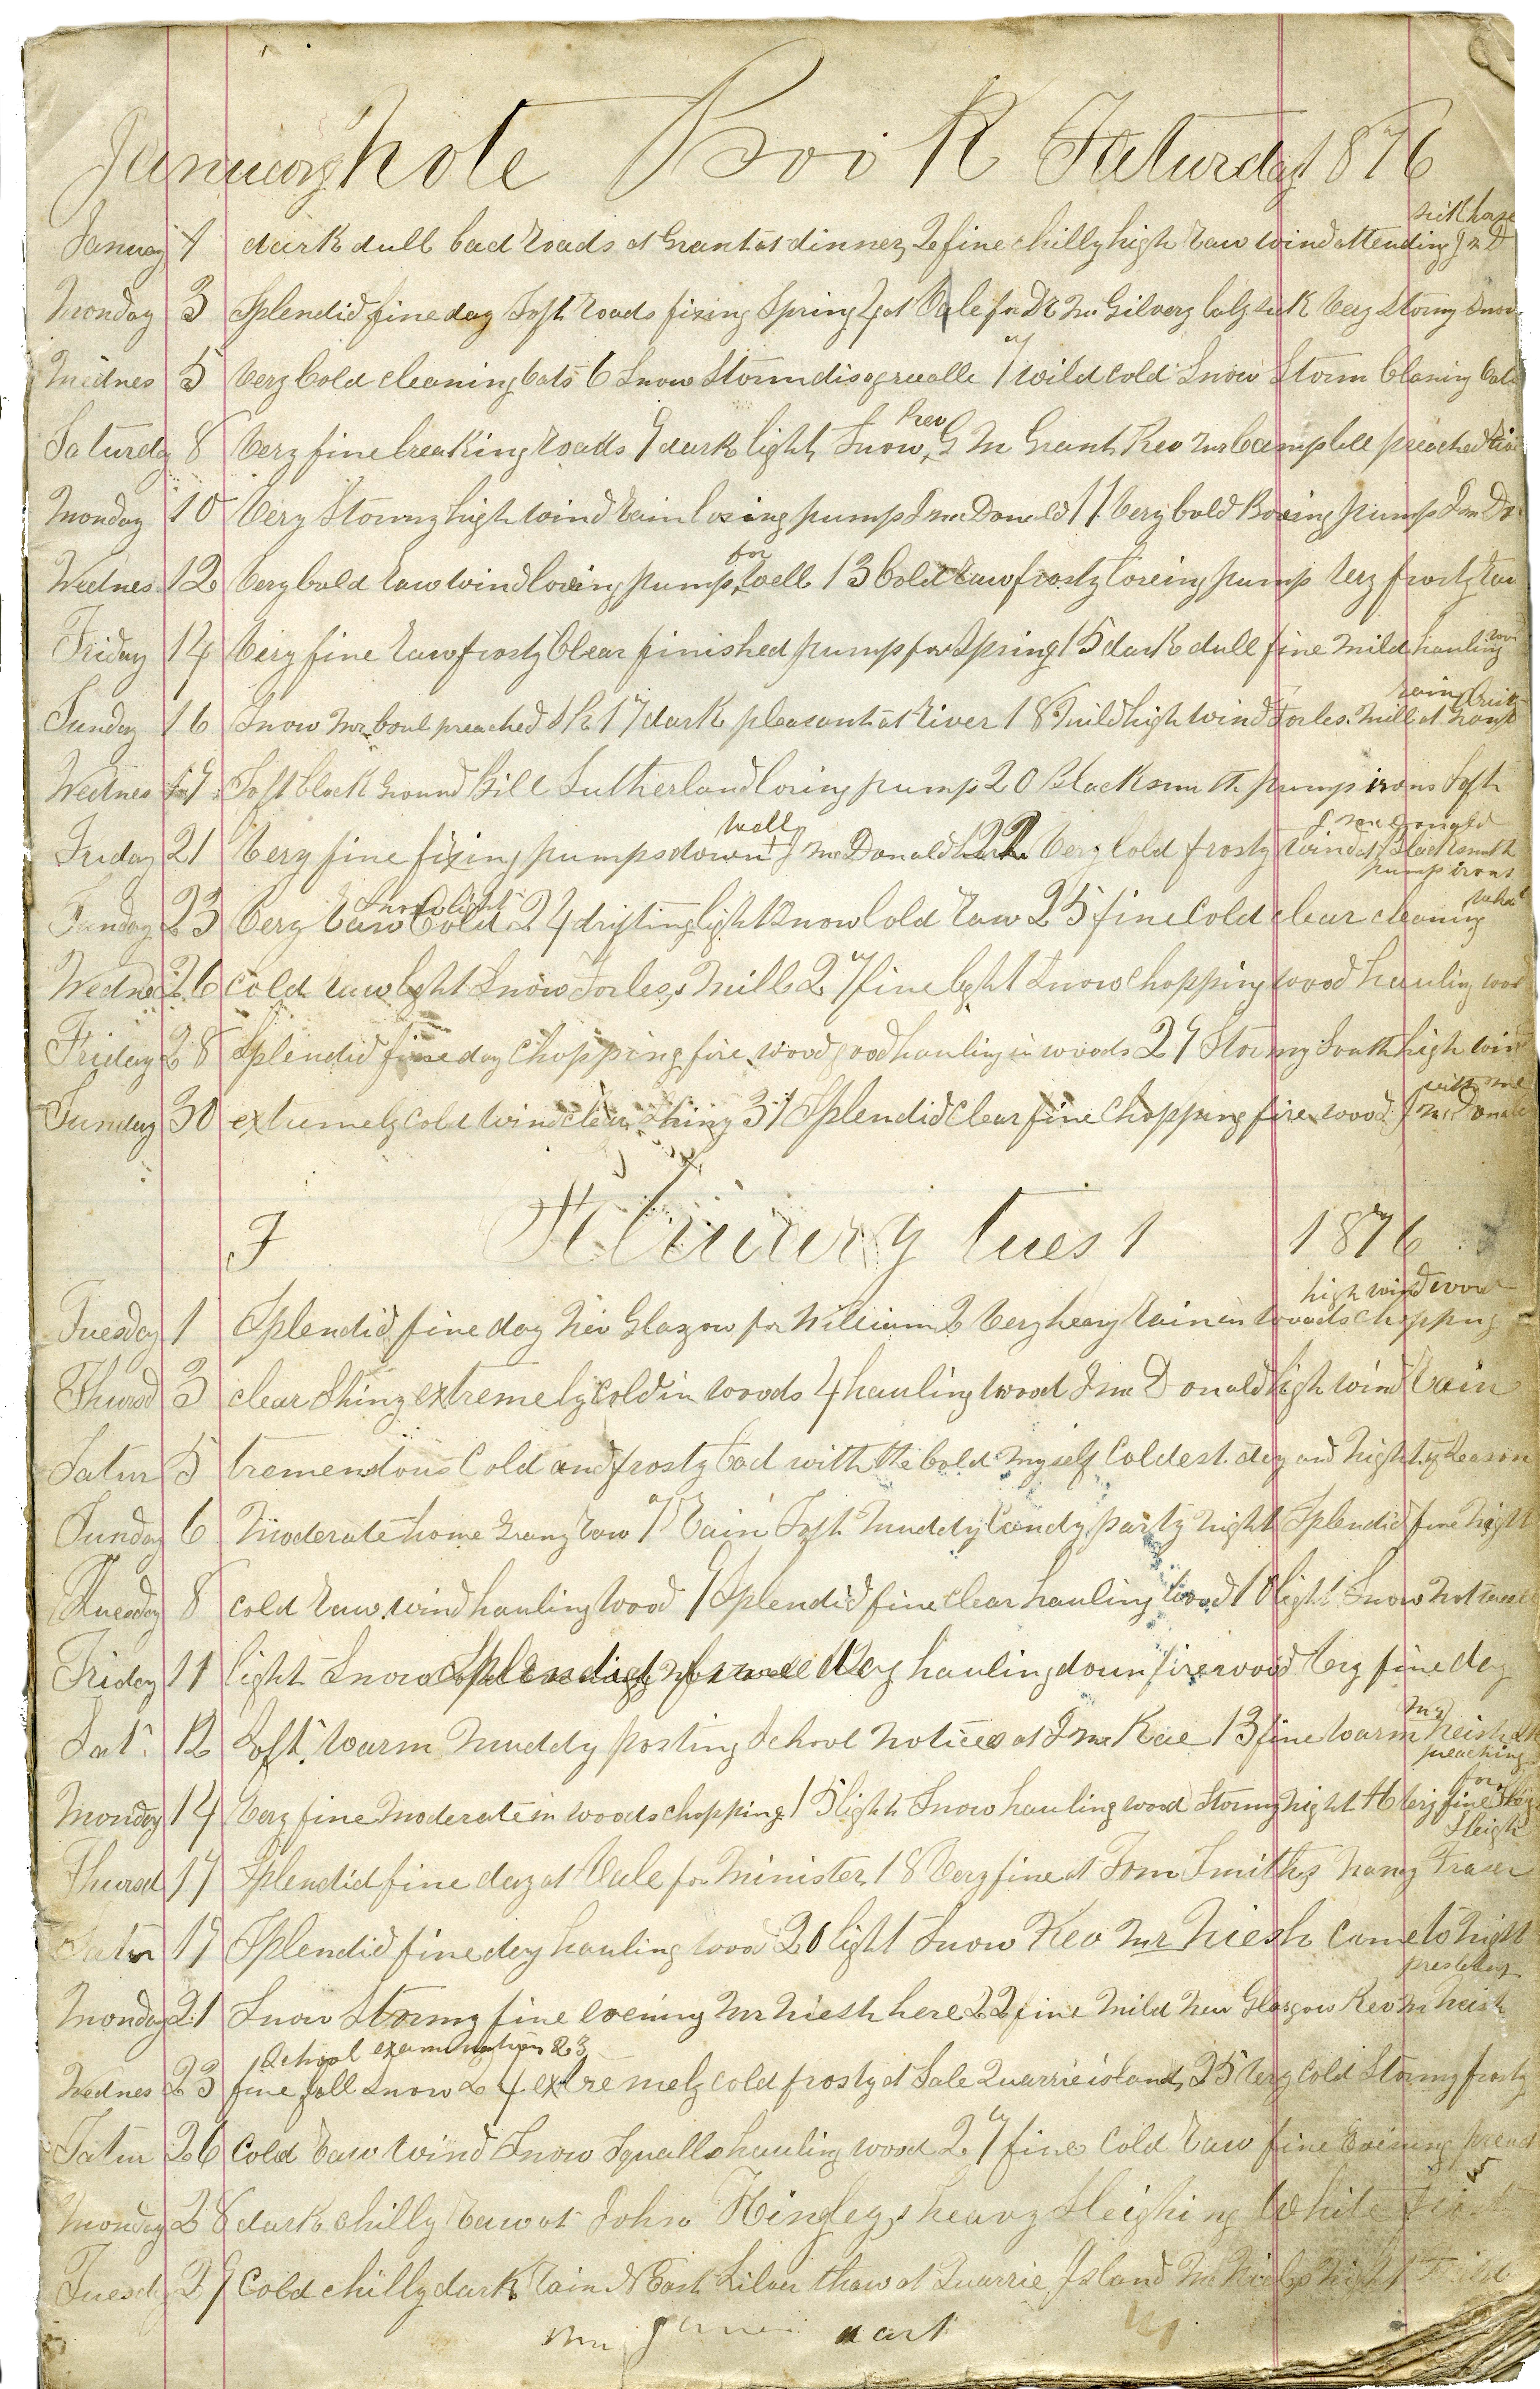 January Note Book Saturday 1 1876
sick horse
January 1 dark dull bad roads at Grant at dinner 2 fine chilly high raw wind attending
Monday 3 Splendid fine day Soft roads fixing Spring 4 at Vale for Dr Mc Gilvery sick very stormy Snow
Wednes 5 very Cold cleaning oats 6 Snow Storm disagreealle 7 wild cold Snow Storm
Rev
Saturdy 8 very fine breaking roads 9 dark light Snow G M Grant Rev Mr Campbell preached
Monday 10 very Stormy high wind rain boring pump J mc Donald 11 very Cold Boring pump J mc Do
for
Wednes 12 very Cold raw wind boring pump well 13 Cold raw frosty boreing pump very frosty raw
Friday 14 very fine raw frosty Clear finished pump for Spring 15 dark dull fine mild hauling wood
rain
Sunday 16 Snow Mr preached 17 dark pleasant at river 18 mild high wind Forbes mill at
Wednes 19 Soft black Ground Bill Sutherland boring pump 20 Blacksmith pump irons Soft
well J mc Donald
Friday 21 very fine fixing pumps down J Mc Donald 22 very Cold frosty wind at Blacksmith
pump irons
Snow light
Sunday 23 very raw Cold 24 drifting light Snow Cold raw 25 fine Cold clear cleaning
Wednes 26 cold raw light Snow Forbes, mill 27 fine light Snow Chopping wood hauling wood
Friday 28 Splendid fine day Chopping fire wood good hauling in woods 29 Stormy South high wind
with me
Sunday 30 extremely cold wind clear Shiny 31 Splendid Clear fine Chopping fire wood J mc Donald
F February tues 1 1876
high wind wood
Tuesday 1 Splendid fine day New Glazgow for William 2 very heavy rain in woods chopping
Thursd 3 clear Shiny extremely Cold in woods 4 hauling wood J mc Donald high wind rain
Satur 5 tremendous Cold and frosty bad with the Cold myself Coldest day and night of Season
Sunday 6 Moderate home raw 7 rain Soft muddy Candy party night Splendid fine night
Tuesday 8 cold raw wind hauling wood 9 Splendid fine clear hauling wood 10 light Snow not
Friday 11 light Snow hauling down firewood very fine day
Mr
Sat. 12 Soft warm muddy posting School notices at J Mc Kae 13 fine warm neish
preaching
Monday 14 very fine moderate in woods chopping 15 light Snow hauling wood Stormy night 16 very fine
for
Sleigh
Thursd 17 Splendid fine day at Vale for minister 18 very fine at Tom Smiths Fraser
Satur 19 Splendid fine day hauling wood 20 light Snow Rev Mr Niesh Came to night
presbetery
Monday 21 Snow Stormy fine evening Mr Niesh here 22 fine mild New Glasgow Rev Mr Neish
School examination 23
Wednes 23 fine fall Snow 24 extremely cold frosty at Sale Quarrie island 25 very Cold Stormy frosty
Satur 26 Cold raw wind Snow Squalls hauling wood 27 fine Cold raw fine Evening
Monday 28 dark chilly raw at John Hingleys heavy Sleighing White
Tuesdy 29 Cold chilly dark rain N East Silver thaw at Quarrie Island